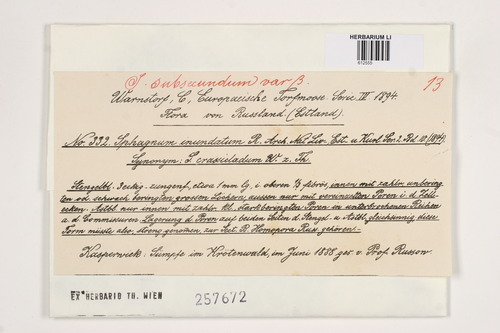 HERBARIUM LI
612555
S. subsecundum var β.
13
Warnstorf, C., Europaeische Torfmoose Serie III 1894.
Flora von Russland (Estland).
No. 332. Sphagnum inundatum R. Arch. Nat. Liv. Est. u. Kurl. Ser. 2. Bd. 10. (1894).
Synonym: S. crassicladum W. z. Th.
Stengelbl. 3eckig-zungenf., etwa 1 mm lg., i. oberen 1/3 fibrös, innen mit zahlr. unbering-
ten od. schwach beringten grossen Löchern, aussen nur mit vereinzelten Poren i. d. Zell-
ecken. Astbl. nur innen mit zahlr. kl. starkberingten Poren in unterbrochenen Reihen
a. d. Commissuren. Lagerung d. Poren auf beiden Seiten d. Stengel- u. Astbl. gleichsinnig; diese
Form müsste also streng genommen zur Sect. B. Homopora Russ. gehören.
Kasperwiek: Sümpfe im Krotenwald, im Juni 1888 ges. v. Prof. Russow.
EX HERBARIO TH. WIEN
257672